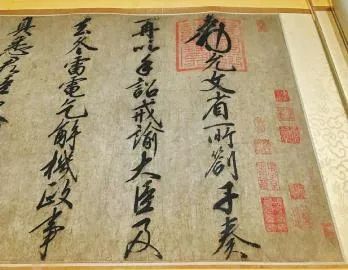 勑允文省所劄子奏
再以手詔戒諭大臣及
去冬雷電乞解機政事
具悉